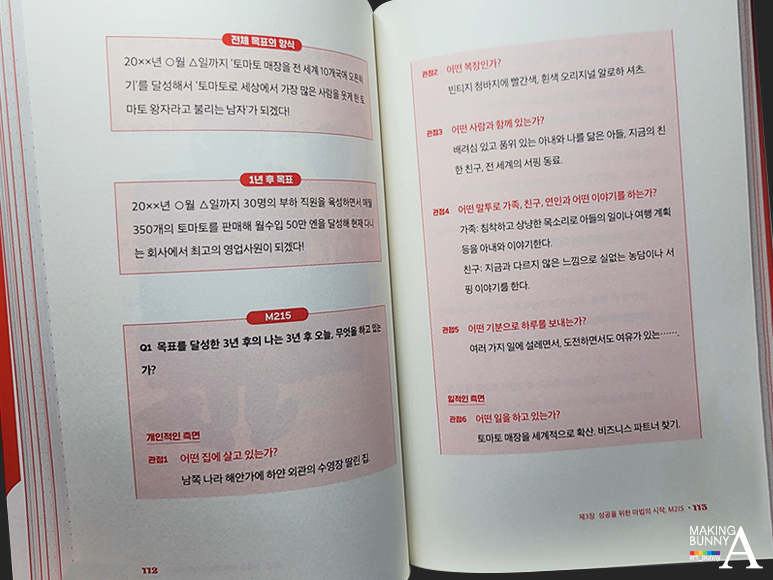 전체 목표의 양식
20××년 ○월 △일까지 '토마토 매장을 전 세계 10개국에 오픈하
기'를 달성해서 '토마토로 세상에서 가장 많은 사람을 웃게 한 토
마토 왕자라고 불리는 남자'가 되겠다!
1년 후 목표
20××년 ○월 △일까지 30명의 부하 직원을 육성하면서 매월
350개의 토마토를 판매해 월수입 50만 엔을 달성해 현재 다니
는 회사에서 최고의 영업사원이 되겠다!
M215
Q1 목표를 달성한 3년 후의 나는 3년 후 오늘, 무엇을 하고 있는
가?
개인적인 측면
관점1 어떤 집에 살고 있는가?
남쪽 나라 해안가에 하얀 외관의 수영장 딸린 집.
112
관점2 어떤 복장인가?
빈티지 청바지에 빨간색, 흰색 오리지널 알로하 셔츠.
관점3 어떤 사람과 함께 있는가?
배려심 있고 품위 있는 아내와 나를 닮은 아들, 지금의 친
한 친구, 전 세계의 서핑 동료.
관점4 어떤 말투로 가족, 친구, 연인과 어떤 이야기를 하는가?
가족: 침착하고 상냥한 목소리로 아들의 일이나 여행 계획
등을 아내와 이야기한다.
친구: 지금과 다르지 않은 느낌으로 실없는 농담이나 서
핑 이야기를 한다.
관점5 어떤 기분으로 하루를 보내는가?
여러 가지 일에 설레면서, 도전하면서도 여유가 있는…….
일적인 측면
관점6 어떤 일을 하고 있는가?
토마토 매장을 세계적으로 확산. 비즈니스 파트너 찾기.
제3장 성공을 위한 마법의 시작, M215 · 113
MAKING
BUNNY
A